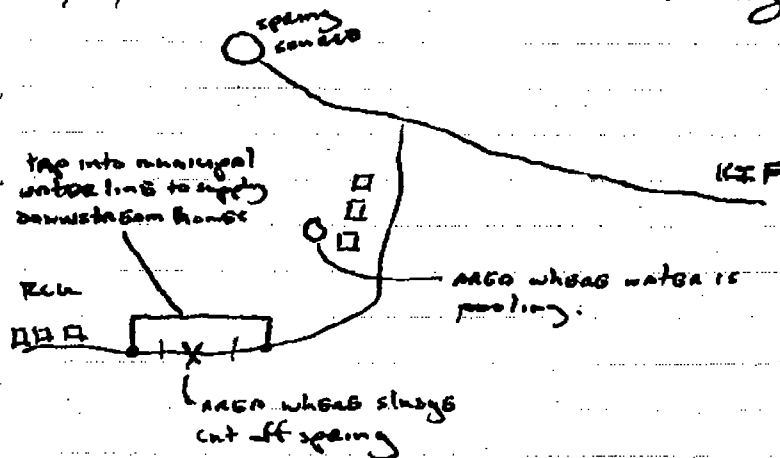 spring
source
tap into municipal
water line to supply
downstream homes
KIF
AREA where water is
pooling.
AREA where sludge
cut off spring